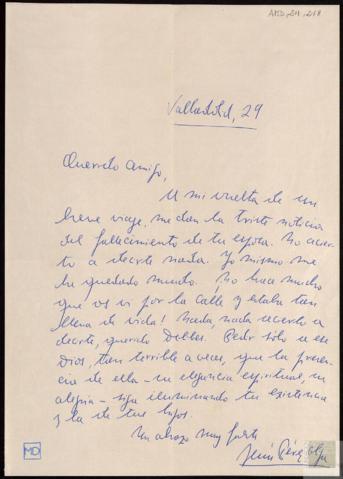 AMD, 84, 218
Valladolid, 29
Querido amigo,
A mi vuelta de un
breve viaje, me dan la triste noticia
del fallecimiento de tu esposa. No acier-
to a decirte nada. Yo mismo me
he quedado mudo. No hace mucho
que os vi por la calle y estaba tan
llena de vida! Nada, nada acierto a
decirte, querido Delibes. Pedir sólo a ese
Dios, tan terrible a veces, que la presen-
cia de ella - su elegancia espiritual, su
alegría - siga iluminando tu existencia
y la de tus hijos.
Un abrazo muy fuerte
Jesús Pérez
MD